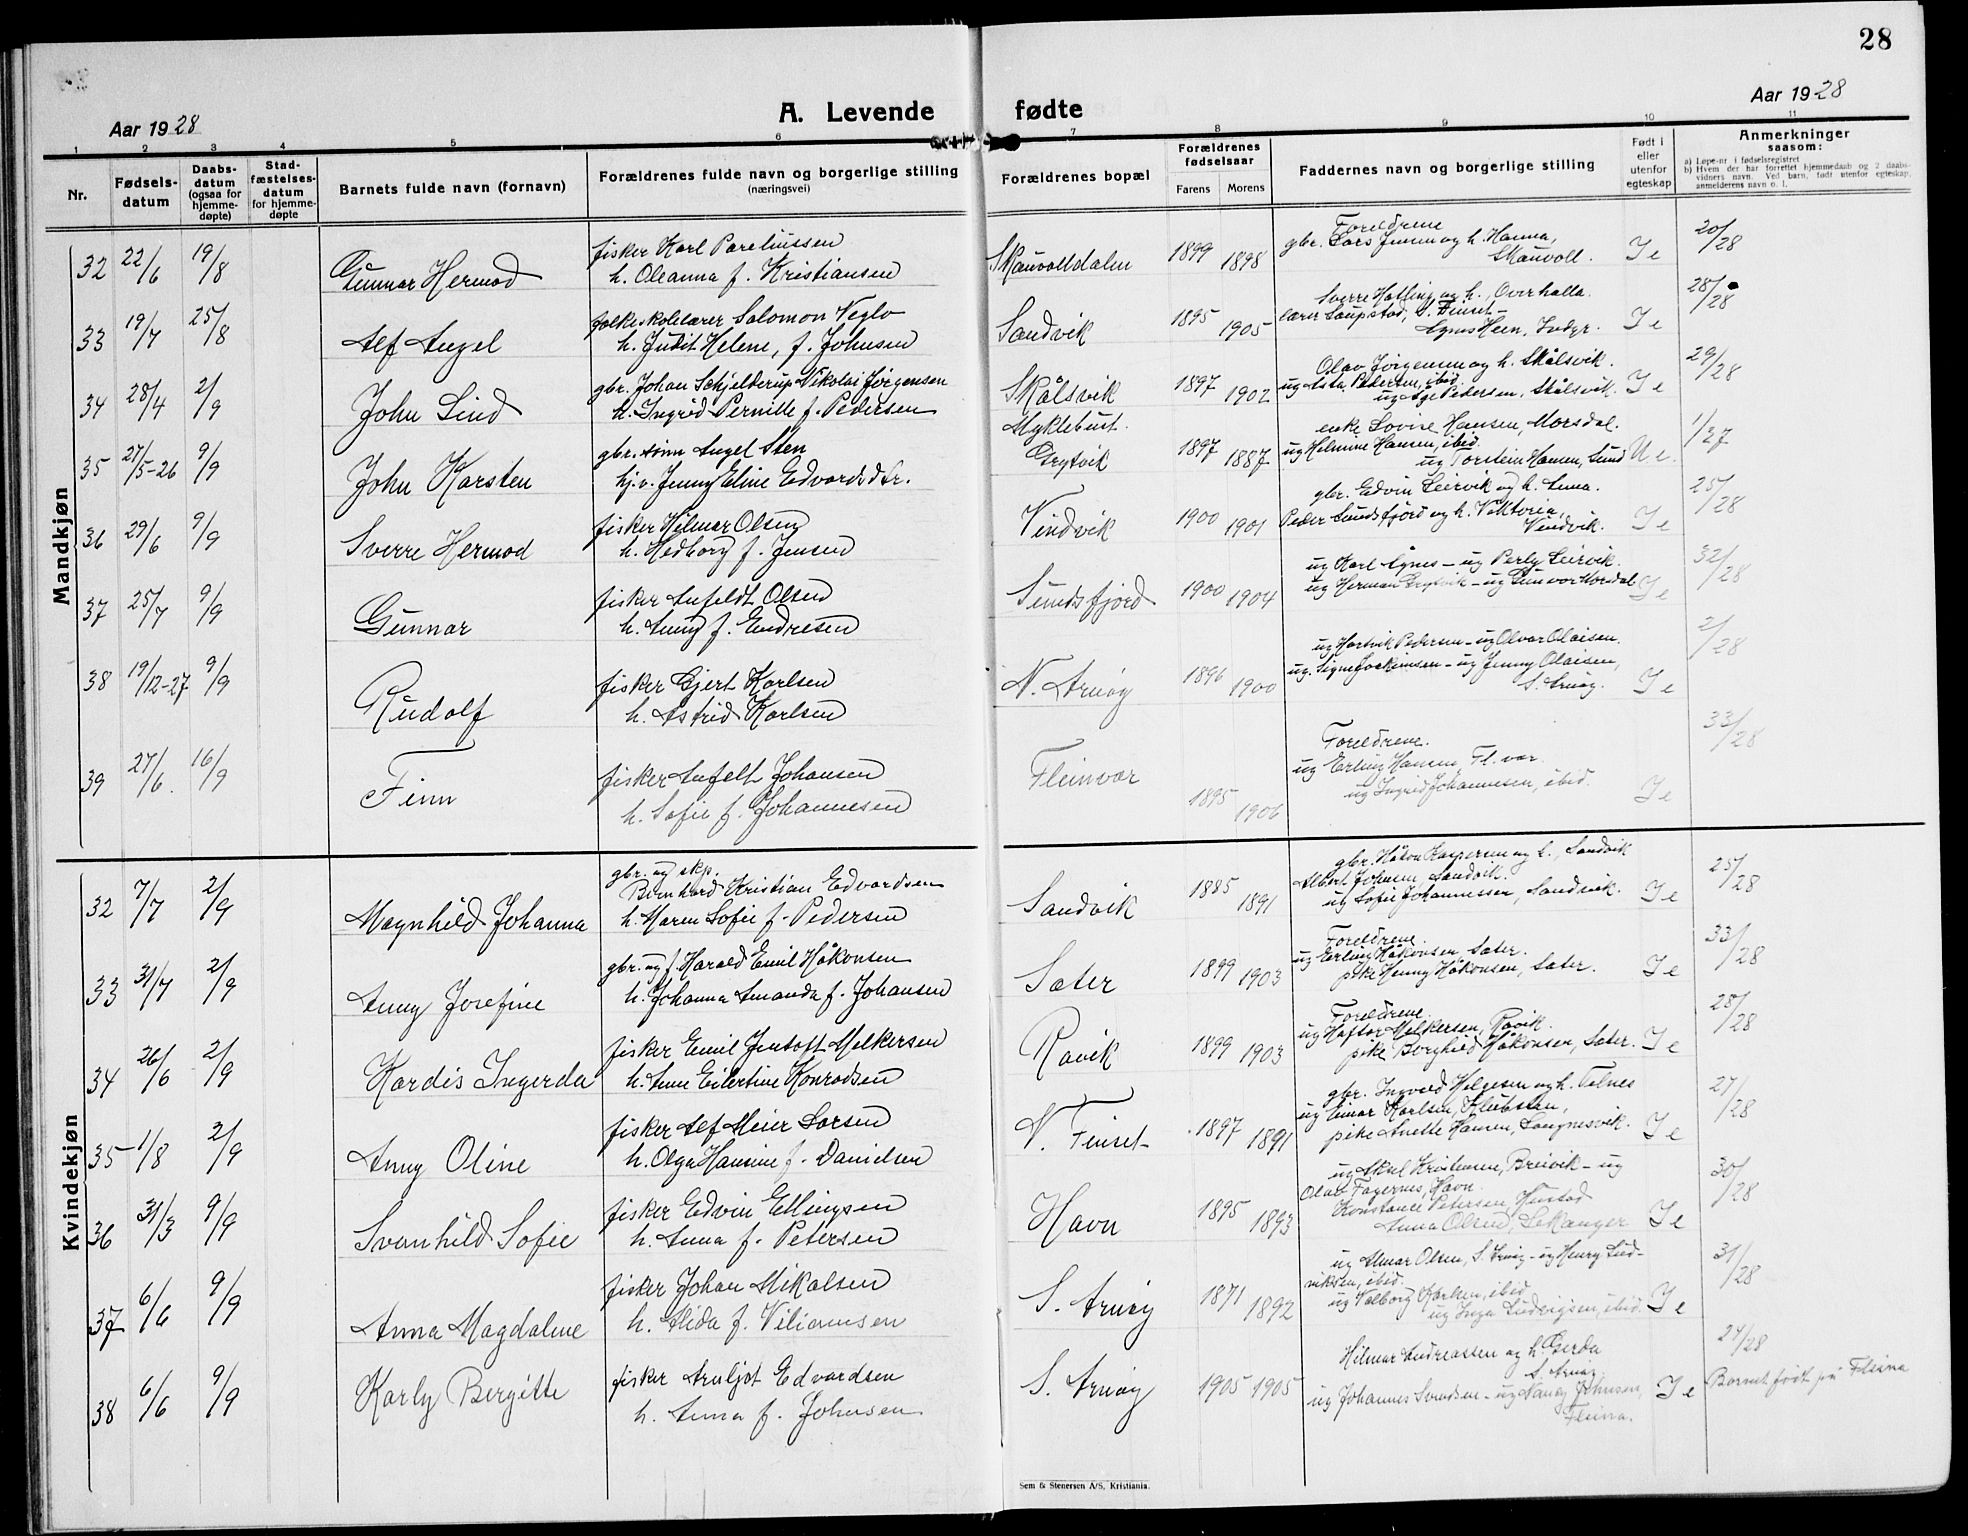 28
Aar 1928
A. Levende fødte
Aar 1928
1 2 3 4 5 6 7 8 9 10 11
Nr.
Fødsels-
datum
Daabs-
datum
(ogsaa for
hjemme-
døpte)
Stad-
fæstelses-
datum
for hjemme-
døpte
Barnets fulde navn (fornavn)
Forældrenes fulde navn og borgerlige stilling
(næringsvei)
Forældrenes bopæl
Forældrenes
fødselsaar
Farens Morens
Faddernes navn og borgerlige stilling
Født i
eller
utenfor
egteskap
Anmerkninger
saasom:
a) Løpe-nr i fødselsregistret
b) Hvem der har forrettet hjemmedaab og 2 daabs-
vidners navn. Ved barn, født utenfor egteskap,
anmelderens navn o. l.
Mandkjøn
32 22/6 19/8 Gunnar Hermod
fisker Karl Pareliussen
h. Oleanna f. Kristiansen
Skauvolldalen 1899 1898
Foreldrene
gbr. Lars Jensen og h. Hanna,
Skauvoll. I e 20/28
33 19/7 25/8 Alf Angel
folkeskolelærer Salomon Veglo
h. Judit Helene, f. Johnsen
Sandvik 1895 1905
Sverre Halsing og h., Overhalla.
lærer Saupstad, S. Finset-
Agnes Heen, Inder. I e 28/28
34 28/4 2/9 John Lind
gbr. Johan Schjelderup Nikolai Jørgensen
h. Ingrid Pernille f. Pedersen
Skålsvik 1897 1902
Olav Jørgensen og h. Skålsvik.
ug Asta Pedersen, ibid.
ug Åge Pedersen, Skålsvik. I e 29/28
35 27/5-26 9/9 John Karsten
gbr. sønn Angel Sten
hj. v. Jenny Eline Edvardsdtr.
Myklebust.
Grytvik 1897 1887
enke Lovise Hansen, Morsdal.
ug Helmine Hansen, ibid.
ug Torstein Hansen, Sund U e. 1/27
36 29/6 9/9 Sverre Hermod
fisker Hilmar Olsen
h. Hedborg f. Jensen
Vindvik 1900 1901
gbr. Edvin Leirvik og h. Anna.
Peder Sundsfjord og h. Viktoria,
Vindvik. I e 25/28
37 25/7 9/9 Gunnar
fisker Anfeldt Olsen
h. Anny f. Endresen
Sundsfjord 1900 1904
ug Karl Agnes - ug Perly Leirvik.
ug Herman Grytvik - ug Gunvor Morsdal I e 32/28
38 19/12-27 9/9 Rudolf
fisker Gjert Karlsen
h. Astrid Karlsen
N. Arnøy 1896 1900
ug Hartvik Pedersen - ug Olvar Olaisen.
ug. Signe Joakimsen - ug Jenny Olaisen,
S. Arnøy. I e 2/28
39 27/6. 16/9 Finn
fisker Anfelt Johansen
h. Sofie f. Johannesen
Fleinvær 1895 1906
Foreldrene.
ug Erling Hansen, Fl. vær.
ug Ingrid Johannesen, ibid. I e 33/28
Kvindekjøn
32 7/7 2/9 Magnhild Johanna
gbr. og skp.
Bernhard Kristian Edvardsen
h. Maren Sofie f. Pedersen
Sandvik 1885 1891
gbr. Håkon Kaspersen og h., Sandvik
Albert Johnsen, Sandvik.
ug Sofie Johannessen, Sandvik. I e 25/28
33 31/7 2/9 Anny Josefine
gbr. og f. Harald Emil Håkonsen
h. Johanna Amanda f. Johansen
Sæter 1899 1903
Foreldrene.
ug Erling Håkonsen, Sæter.
pike Henny Håkonsen, Sæter. I e 33/28
34 26/6 2/9 Kardis Ingerda
fisker Emil Jentoft Melkersen
h. Anne Eilertine Konradsen
Ravik 1899 1903
Foreldrene.
ug Haftor Melkersen, Ravik.
pike Borghild Håkonsen, Sæter. I e 28/28
35 1/8 2/9 Anny Oline
fisker Alf Meier Larsen
h. Olga Hansine f. Danielsen
N. Finset 1897 1891
gbr. Ingvald Helgesen og h. Felnes
ug Einar Karlsen, Klubstan,
pike Anette Hansen, Langnesvik. I e 27/28
36 31/3 9/9 Svanhild Sofie
fisker Edvin Ellingsen
h. Anna f. Petersen
Havn 1895 1893
ug Aksel Kristensen, Breivik - ug
Olav Fagernes, Havn.
Konstance Petersen, Hustad
Anna Olsen, Lekanger I e 30/28
37 6/6 9/9 Anna Magdalene
fisker Johan Mikalsen
h. Alida f. Viliamsen
S. Arnøy 1871 1892
ug Almar Olsen, S. Arnøy - ug Henry Lud-
viksen, ibid.
ug Valborg Karlsen, ibid
ug Inga Ludvigsen, ibid. I e 31/28
38 6/6 9/9 Karly Bergitte
fisker Arnljot Edvardsen
h. Anna f. Johnsen
S. Arnøy 1905 1905
Hilmar Andreassen og h. Gerda
S. Arnøy
ug Johannes Svendsen - ug Nancy Johnsen,
Fleina. I e 24/28
Barnet født på Fleina
Sem & Stenersen A/S, Kristiania.